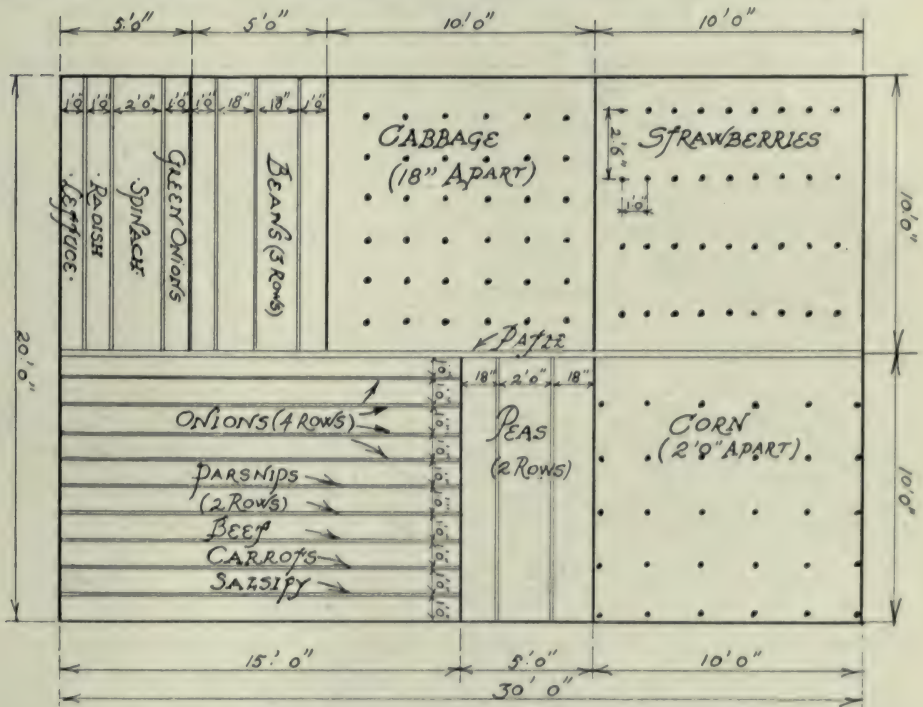 5'0" 5'0" 10'0" 10'0"
1'0" 1'0" 2'0" 1'0" 1'0" 18" 18" 1'0"
LETTUCE.
.RADISH
.SPINACH.
GREEN ONIONS
BEANS (3 ROWS)
CABBAGE
(18" APART)
STRAWBERRIES
2'6"
1'0"
10'0"
20'0"
PATH
ONIONS (4 ROWS)
PARSNIPS
(2 ROWS)
BEET
CARROTS
SALSIFY
1'0"
1'0"
1'0"
1'0"
1'0"
1'0"
1'0"
1'0"
1'0"
1'0"
18" 2'0" 18"
PEAS
(2 ROWS)
CORN
(2'0" APART)
10'0"
15'0" 5'0" 10'0"
30'0"